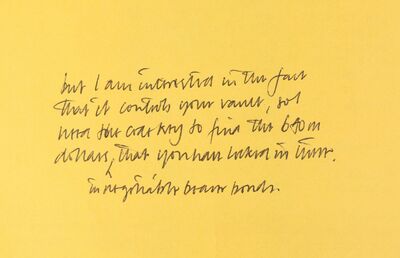 but I am interested in the fact
that it controls your vault, so I
need the code key to find the 640 m
dollars, that you have locked in there.
in negotiable bearer bonds.